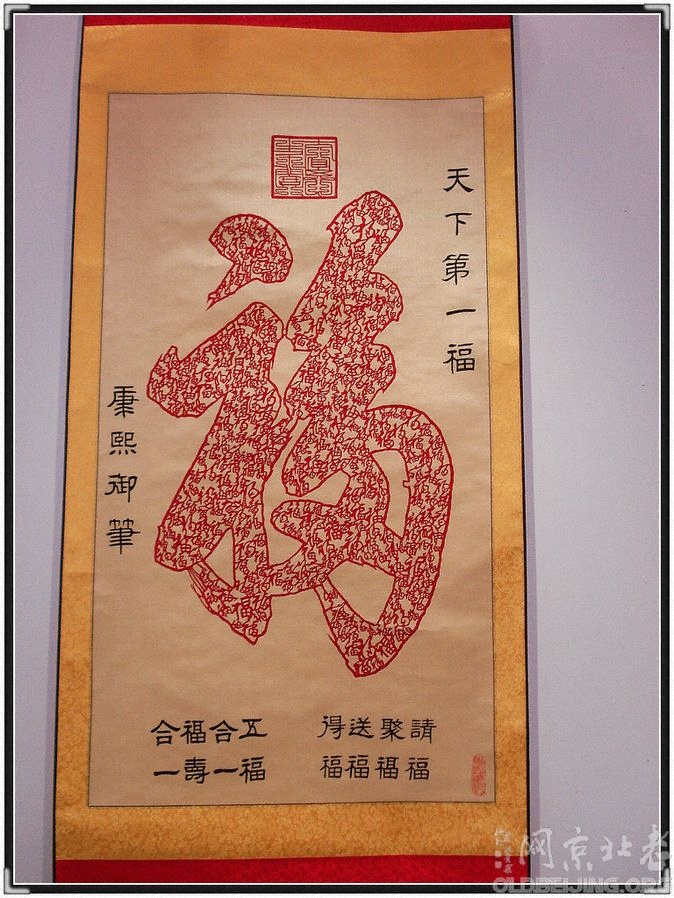 天下第一福
福
康熙御筆
請福
聚福
送福
得福
五福
合一
福壽
合一
老北京网
OLDBEIJING.ORG